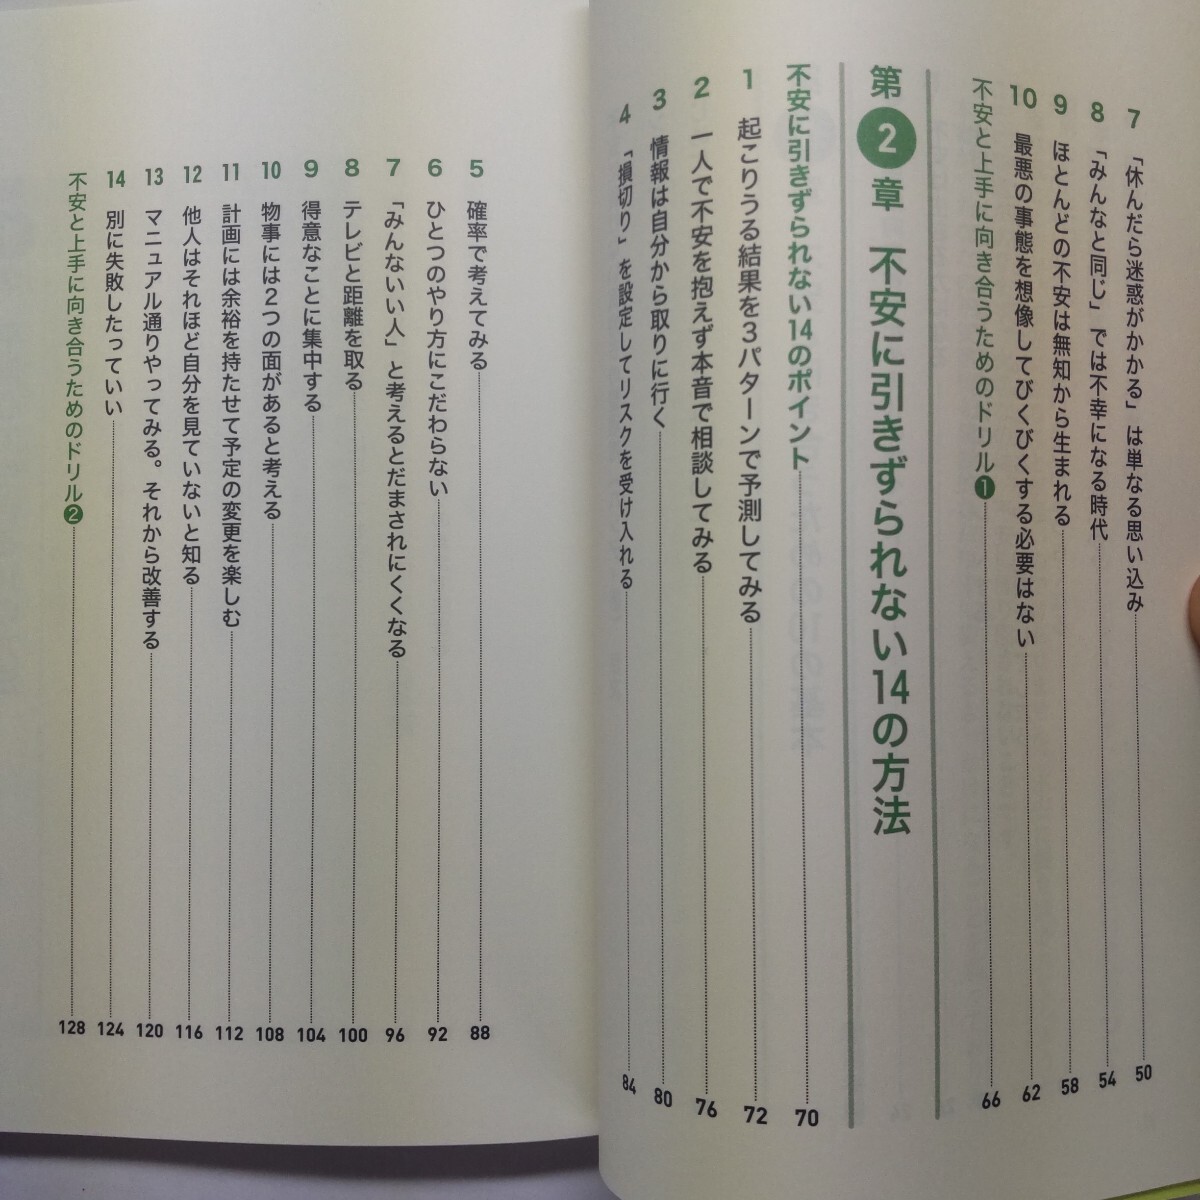 7 「休んだら迷惑がかかる」は単なる思い込み 50
8 「みんなと同じ」では不幸になる時代 54
9 ほとんどの不安は無知から生まれる 58
10 最悪の事態を想像してびくびくする必要はない 62
不安と上手に向き合うためのドリル❶ 66
第2章 不安に引きずられない14の方法
不安に引きずられない14のポイント 70
1 起こりうる結果を3パターンで予測してみる 72
2 一人で不安を抱えず本音で相談してみる 76
3 情報は自分から取りに行く 80
4 「損切り」を設定してリスクを受け入れる 84
5 確率で考えてみる 88
6 ひとつのやり方にこだわらない 92
7 「みんないい人」と考えるとだまされにくくなる 96
8 テレビと距離を取る 100
9 得意なことに集中する 104
10 物事には2つの面があると考える 108
11 計画には余裕を持たせて予定の変更を楽しむ 112
12 他人はそれほど自分を見ていないと知る 116
13 マニュアル通りやってみる。それから改善する 120
14 別に失敗したっていい 124
不安と上手に向き合うためのドリル❷ 128